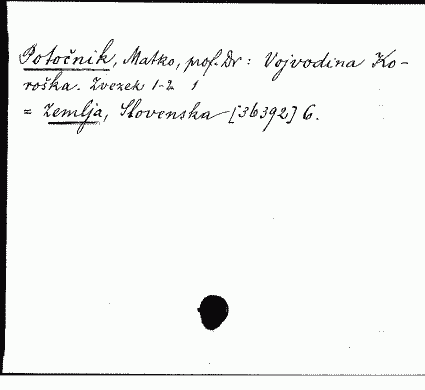 Potočnik, Matko, prof. Dr: Vojvodina Ko-
roška. Zvezek 1-2 1
= Zemlja, Slovenska [36392] 6.